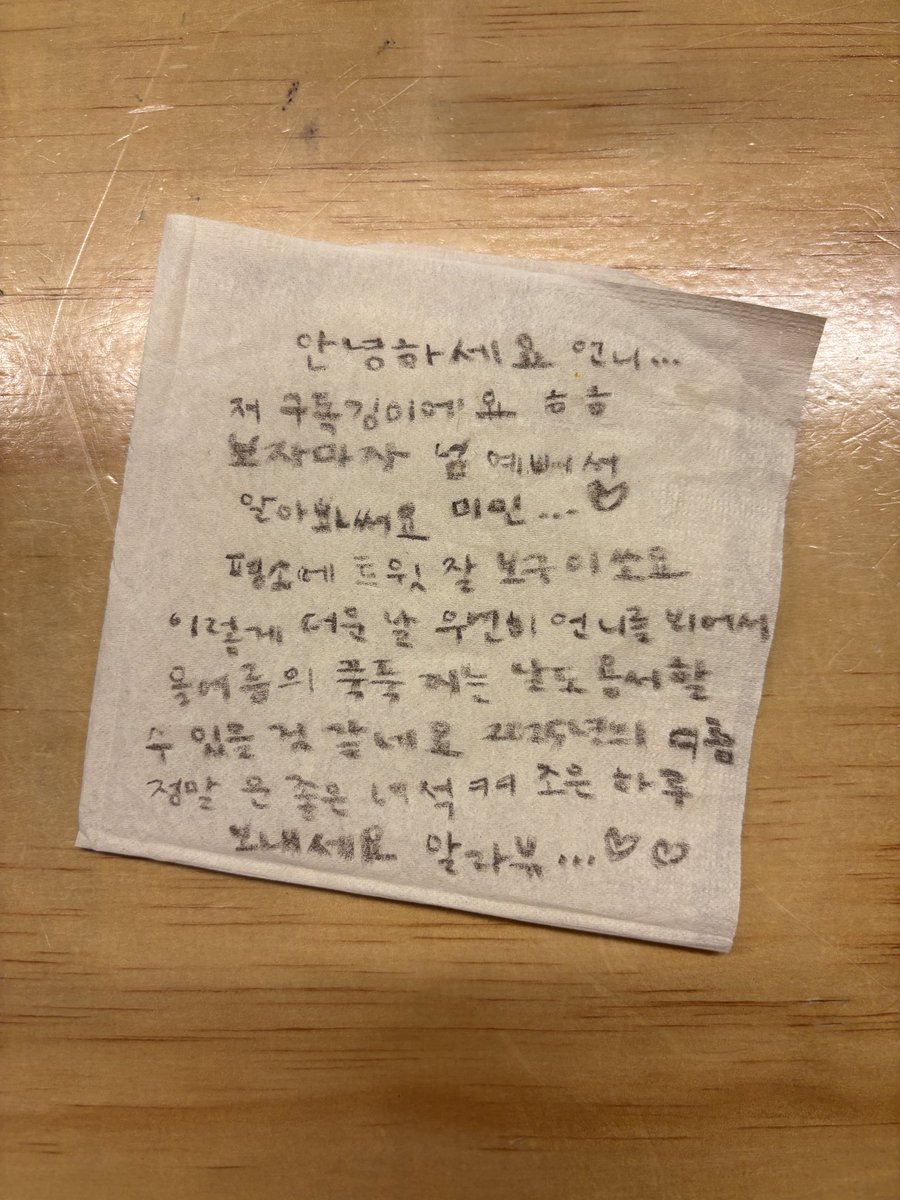 안녕하세요 언니...
저 구독깅이에요 ㅎㅎ
보자마자 넘 예뻐성
알아봐써요 미인...♡
평소에 트윗 잘 보구이쏘요
이렇게 더운 날 우연히 언니를 뵈어서
올여름의 푹푹 찌는 날도 용서할
수 있을 것 같네요 2025년의 여름
정말 좋은 녀석 ㅋㅋ 조은 하루
보내세요 알라뷰...♡♡